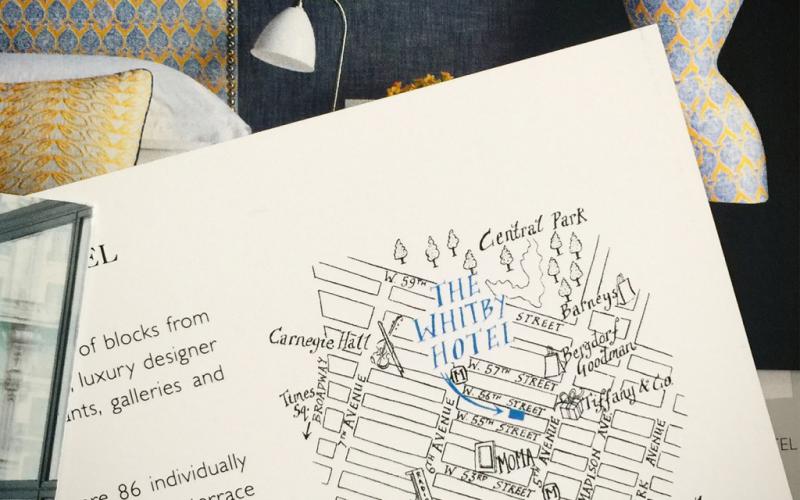 EL
of blocks from
, luxury designer
nts, galleries and
re 86 individually
terrace
Central Park
W. 59TH
STREET
THE
WHITBY
HOTEL
Barneys
Bergdorf
Goodman
Carnegie Hall
W. 57TH STREET
M
Tiffany & Co.
Times
Sq.
BROADWAY
7TH AVENUE
W. 56TH STREET
W. 55TH STREET
6TH AVENUE
MOMA
5TH AVENUE
MADISON AVE
RK AVENUE
W. 53RD STREET
M
TEL